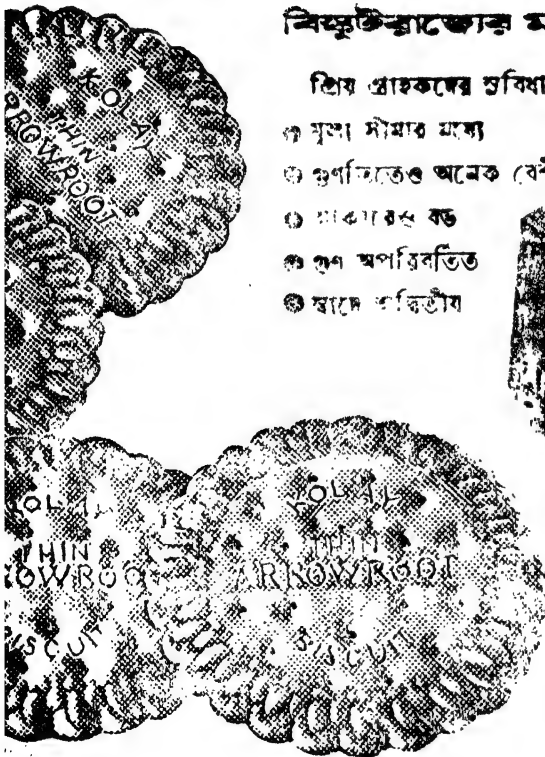 বিস্কুটরাজ্যের
প্রিয় গ্রাহকদের সুবিধা
মূল্য সীমার মধ্যে
গুণতিতেও অনেক বেশী
আকারেও বড়
গুণ অপরিবর্তিত
স্বাদে অদ্বিতীয়
KOLAY
THIN
ARROWROOT
KOLAY
THIN
ARROWROOT
BISCUIT
KOLAY
THIN
ARROWROOT
BISCUIT